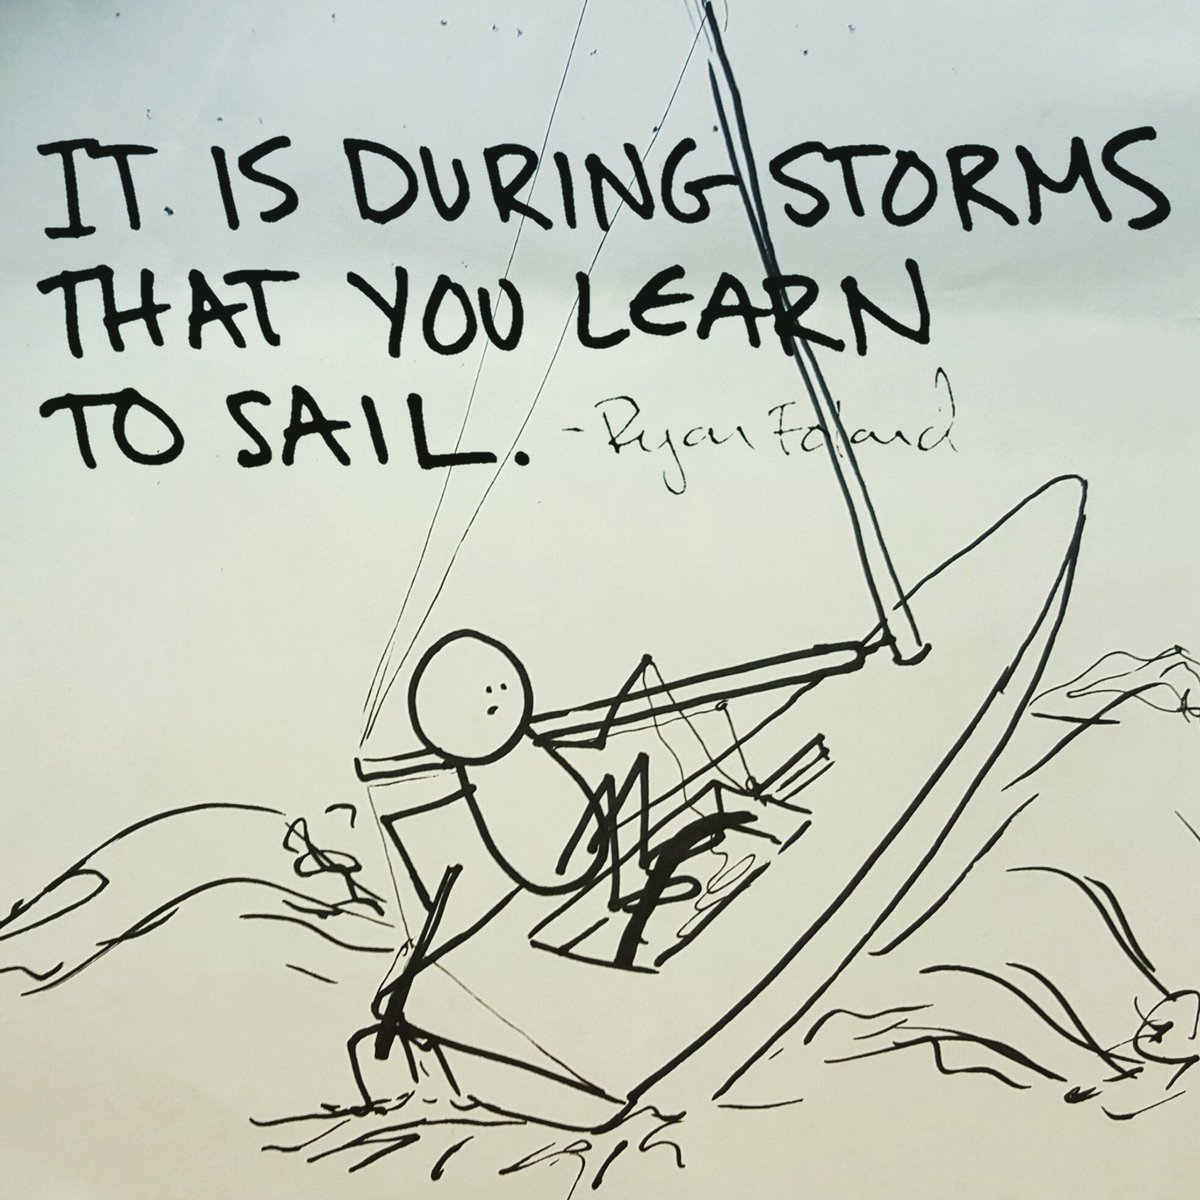 IT IS DURING STORMS
THAT YOU LEARN
TO SAIL. - Ryan Foland